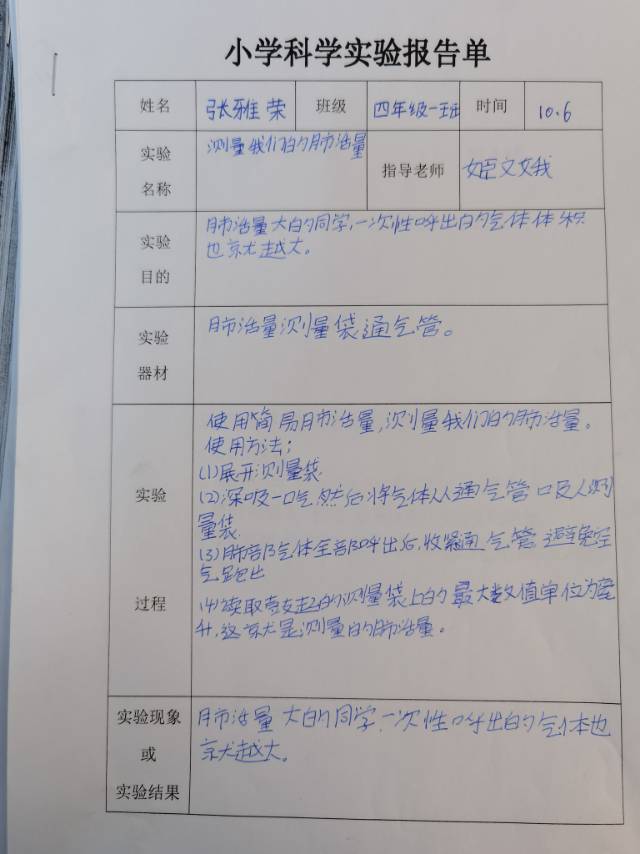 小学科学实验报告单
姓名 张雅荣 班级 四年级一班 时间 10.6
实验名称 测量我们的肺活量 指导老师 姬文娥
实验目的 肺活量大的同学,一次性呼出的气体体积
也就越大。
实验器材 肺活量测量袋通气管。
实验过程
使用简易肺活量,测量我们的肺活量。
使用方法;
(1)展开测量袋
(2)深吸一口气然后将气体从通气管口吸入测
量袋.
(3)肺部气体全部呼出后,收紧通气管避免空
气跑出
(4)读取鼓起的测量袋上的最大数值单位为毫
升,这就是测量的肺活量。
实验现象或实验结果 肺活量大的同学,一次性呼出的气体也
就越大。